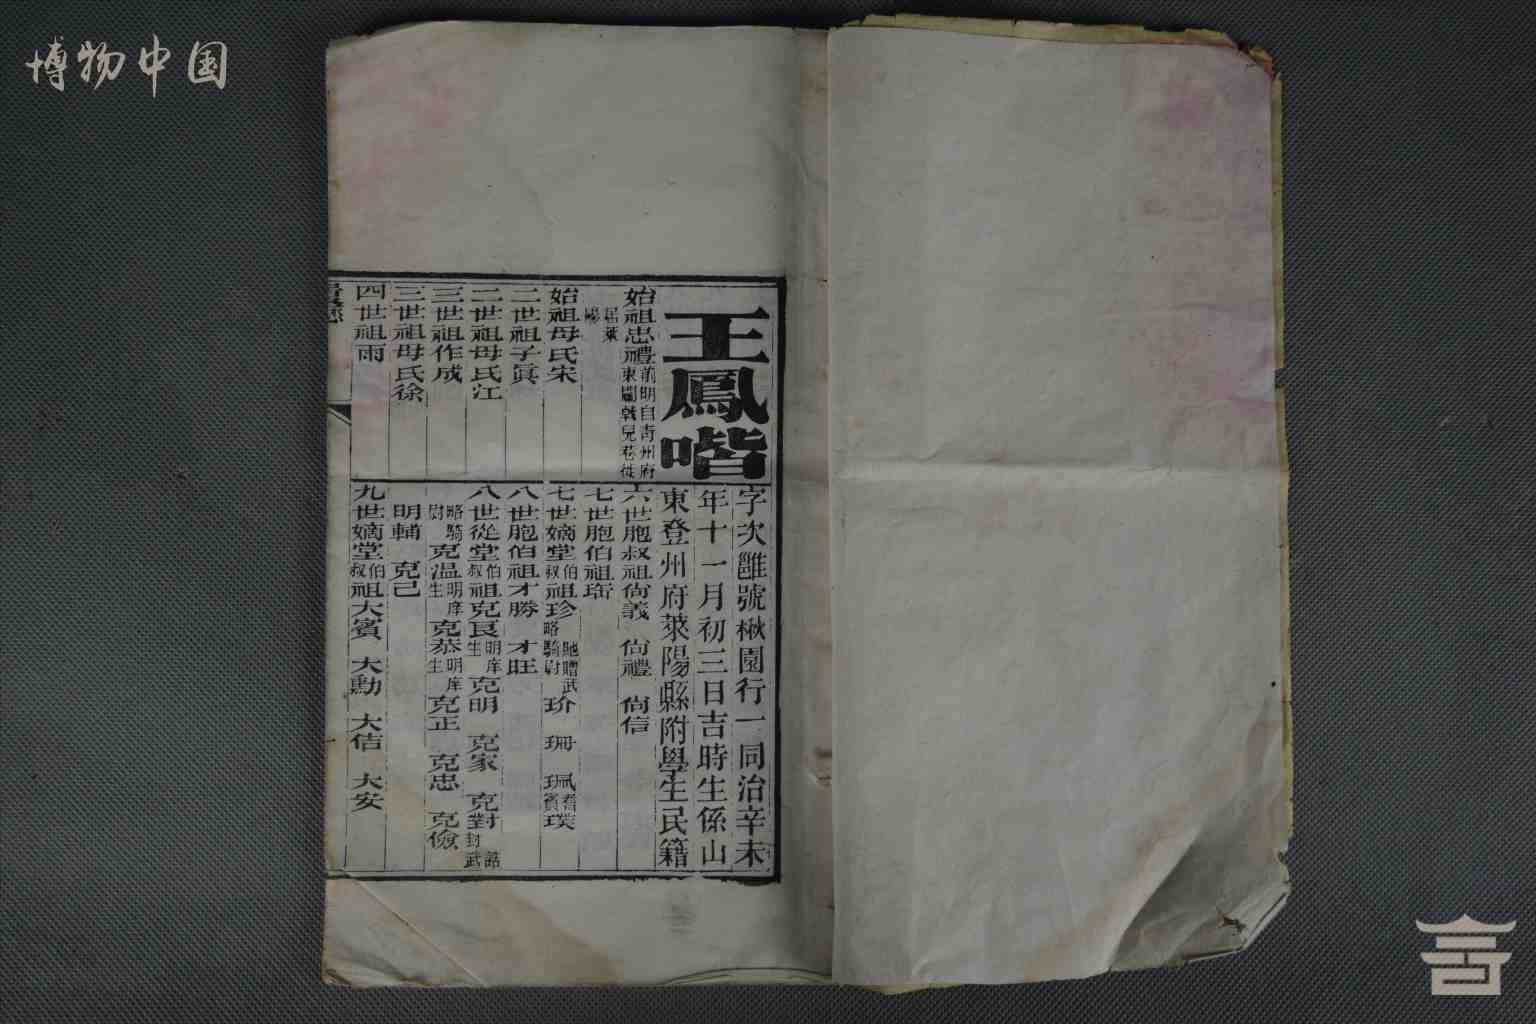 博物中国
王鳳喈
字次雝號楸園行一同治辛未
年十一月初三日吉時生係山
東登州府萊陽縣附學生民籍
始祖忠禮前明自青州府
東關韓兒巷徙
居萊
陽
始祖母氏宋
二世祖子眞
二世祖母氏江
三世祖作成
三世祖母氏徐
四世祖雨
六世胞叔祖尙義 尙禮 尙信
七世胞伯祖
七世嫡堂伯叔祖珍馳贈武略騎尉 玠 珊 珮耆賓 璞
八世胞伯祖才勝 才旺
八世從堂伯叔祖克良明庠生 克明 克家 克對誥封武
略騎尉 克溫明庠生 克恭明庠生 克正 克忠 克儉
明輔 克己
九世嫡堂伯叔祖大賓 大勳 大佶 大安